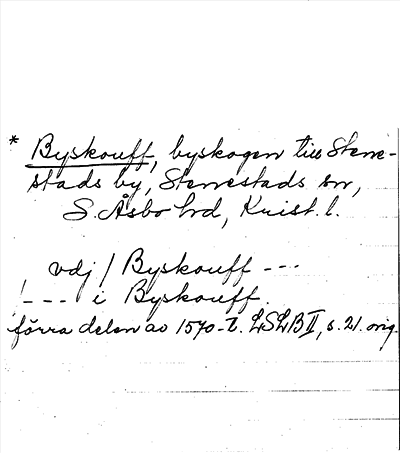 * Byskouff, byskogen till Stene-
stads by, Stenestads sn,
S. Åsbo hd, Krist. l.
vdj / Byskouff ---
! --- i Byskouff.
förra delen av 1570-t. LSLB II, s. 21. orig.